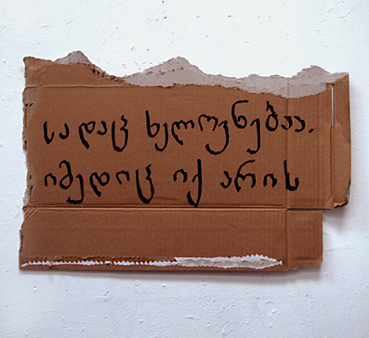 სადაც ხელოვნებაა.
იმედიც იქ არის